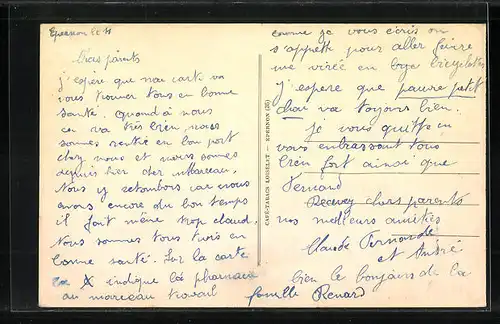 Epernon le 11
chers parents
j'espère que ma carte va
vous trouver tous en bonne
santé. quand à nous
ça va très bien, nous
sommes rentré en bon port
chez nous et nous sommes
depuis hier cher Marceau.
Nous y retombons car nous
avons encore du bon temps
il fait même trop claud.
Nous sommes tous trois en
bonne santé. Sur la carte
X indique la pharmacie
au marceau travail
CAFÉ-TABACS LOISELET - EPERNON (28)
comme je vous écris on
s'appette pour aller faire
une virée en
j'espere que pauvre petit
va toujours bien.
je vous quitte en
vous embrassant tous
bien fort ainsi que
Fernand
Recevez chers parents
nos meilleurs amitiés
Claude Fernande
et André
bien le bonjour de la
famille Renard